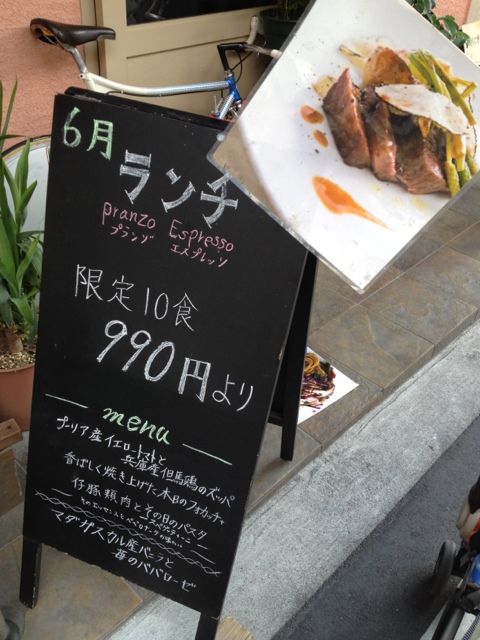 6月
ランチ
pranzo Espresso
プランゾ エスプレッソ
限定10食
990円より
menu
プーリア産イエロートマトと
兵庫産但馬鶏のズッパ
香ばしく焼き上げた本日のフォカッチャ
仔豚頬肉とその日のパスタ
マダガスカル産バニラと
苺のババローゼ